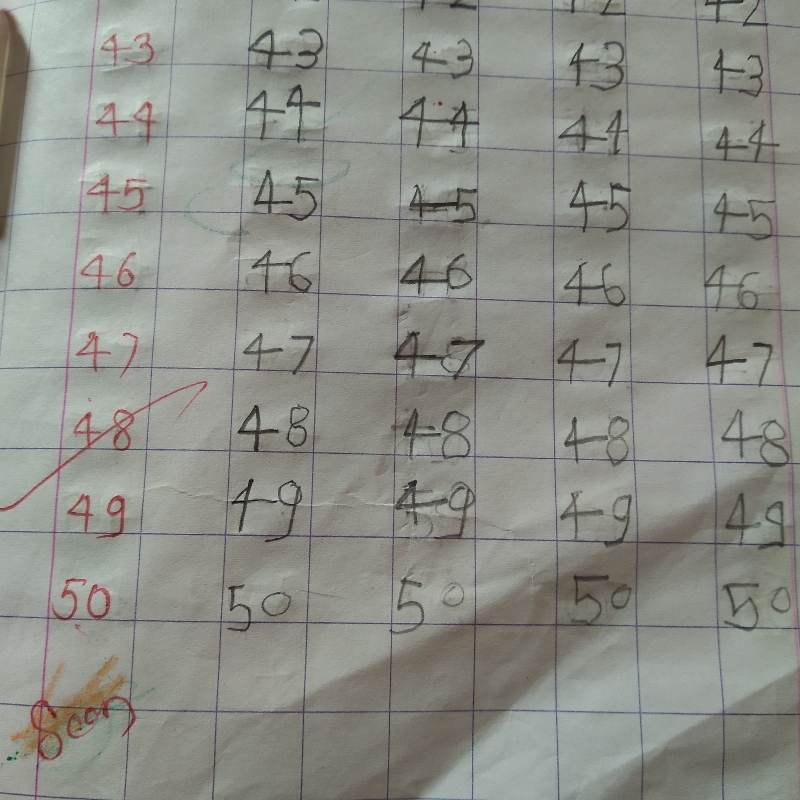 42 42 42
43 43 43 43 43
44 44 44 44 44
45 45 45 45 45
46 46 46 46 46
47 47 47 47 47
48 48 48 48 48
49 49 49 49 49
50 50 50 50 50
Seen